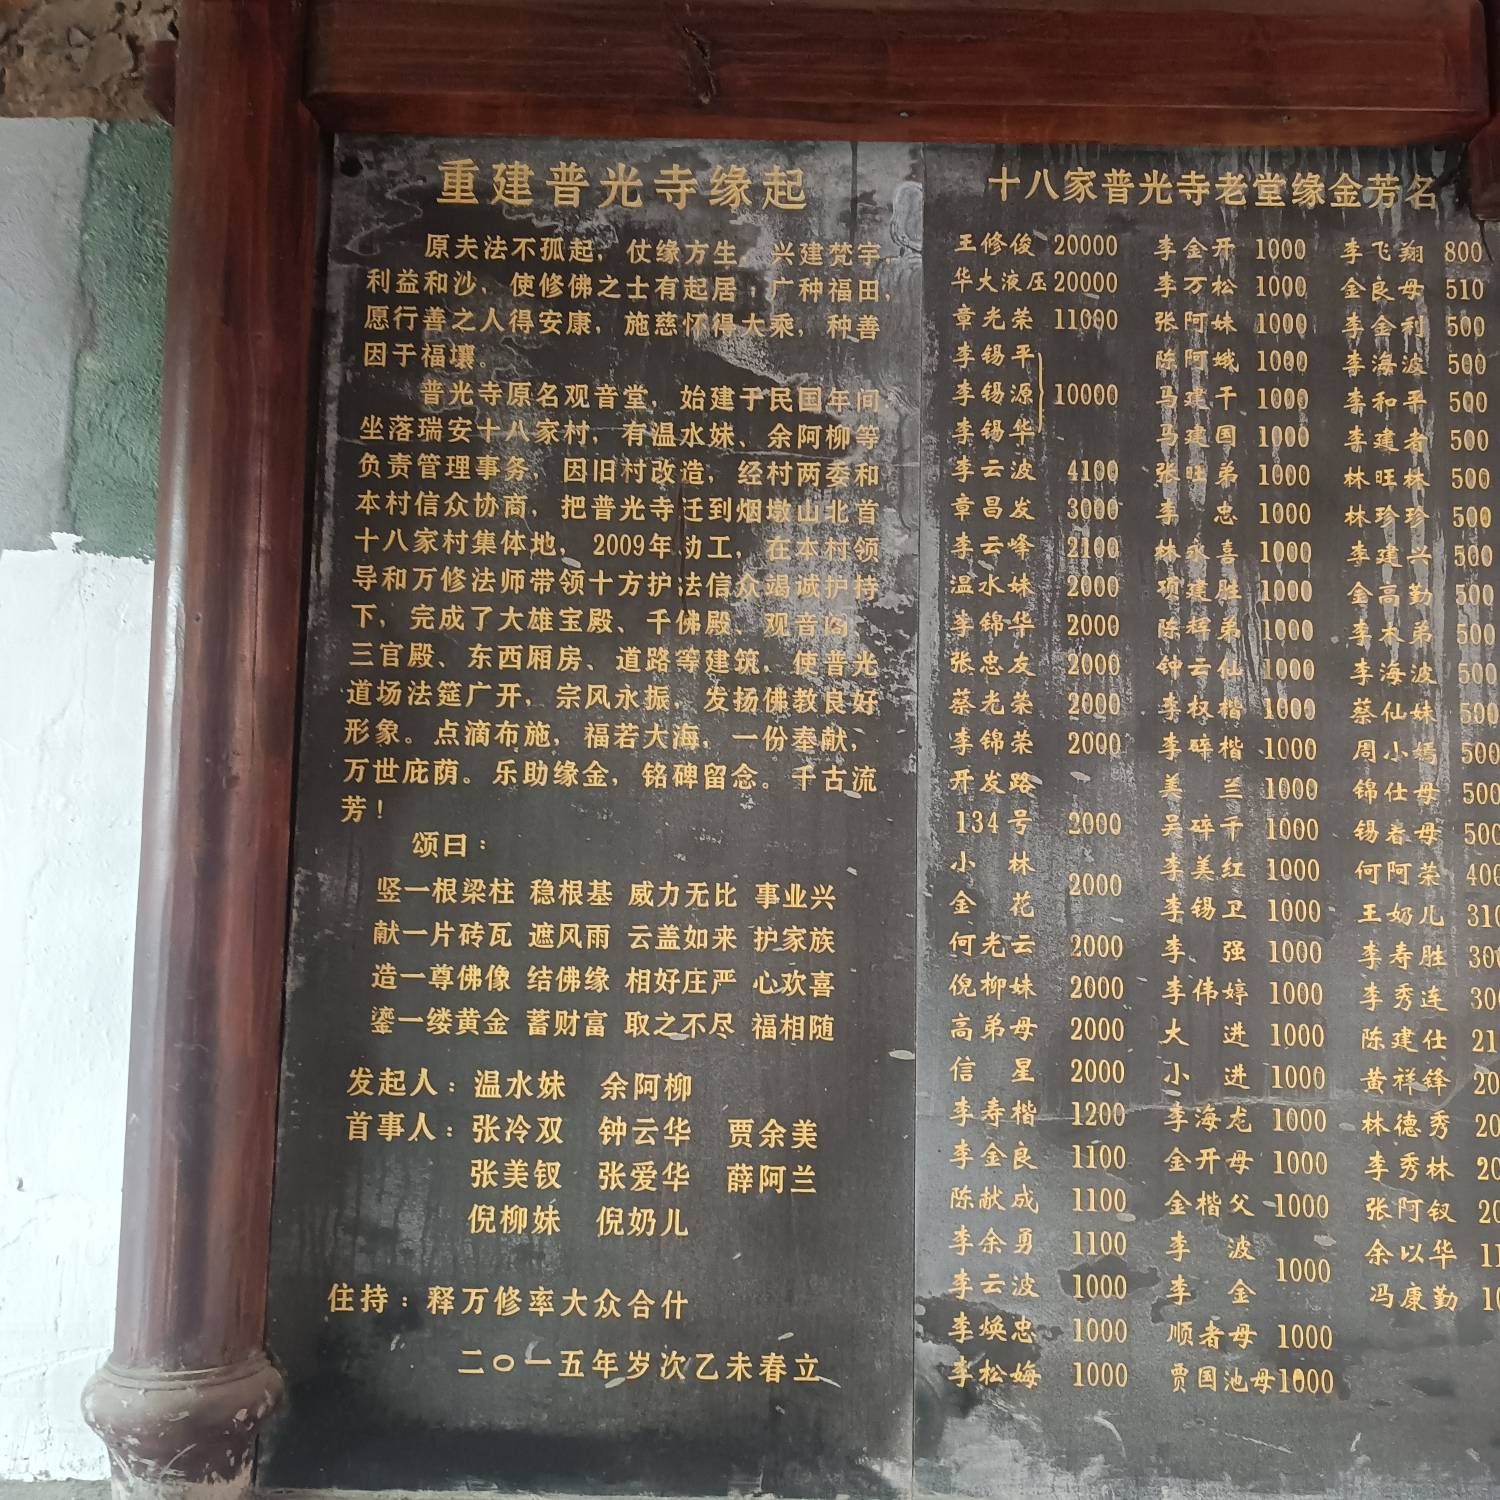 重建普光寺缘起
原夫法不孤起，仗缘方生，兴建梵宇
利益和沙，使修佛之士有起居；广种福田，
愿行善之人得安康，施慈怀得大乘，种善
因于福壤。
普光寺原名观音堂，始建于民国年间
坐落瑞安十八家村，有温水妹、余阿柳等
负责管理事务，因旧村改造，经村两委和
本村信众协商，把普光寺迁到烟墩山北首
十八家村集体地，2009年动工，在本村领
导和万修法师带领十方护法信众竭诚护持
下，完成了大雄宝殿、千佛殿、观音阁、
三官殿、东西厢房、道路等建筑，使普光
道场法筵广开，宗风永振，发扬佛教良好
形象。点滴布施，福若大海，一份奉献，
万世庇荫。乐助缘金，铭碑留念。千古流
芳！
颂曰：
竖一根梁柱 稳根基 威力无比 事业兴
献一片砖瓦 遮风雨 云盖如来 护家族
造一尊佛像 结佛缘 相好庄严 心欢喜
鎏一缕黄金 蓄财富 取之不尽 福相随
发起人：温水妹 余阿柳
首事人：张冷双 钟云华 贾余美
张美钗 张爱华 薛阿兰
倪柳妹 倪奶儿
住持：释万修率大众合什
二〇一五年岁次乙未春立
十八家普光寺老堂缘金芳名
王修俊 20000 李金开 1000 李飞翔 800
华大液压 20000 李万松 1000 金良母 510
章光荣 11000 张阿妹 1000 李金利 500
李锡平 陈阿娥 1000 李海波 500
李锡源 10000 马建干 1000 李和平 500
李锡华 马建国 1000 李建者 500
李云波 4100 张旺弟 1000 林旺林 500
章昌发 3000 李忠 1000 林珍珍 500
李云峰 2100 林永喜 1000 李建兴 500
温水妹 2000 项建胜 1000 金高勤 500
李锦华 2000 陈辉弟 1000 李木弟 500
张忠友 2000 钟云仙 1000 李海波 500
蔡光荣 2000 李权楷 1000 蔡仙妹 500
李锦荣 2000 李碎楷 1000 周小嫣 500
开发路 美兰 1000 锦仕母 500
134号 2000 吴碎千 1000 锡者母 500
小林 李美红 1000 何阿荣 400
2000
金花 李锡卫 1000 王奶儿 310
何光云 2000 李强 1000 李寿胜 300
倪柳妹 2000 李伟婷 1000 李秀连 300
高弟母 2000 大进 1000 陈建仕 21
信星 2000 小进 1000 黄祥锋 20
李寿楷 1200 李海龙 1000 林德秀 20
李金良 1100 金开母 1000 李秀林 20
陈献成 1100 金楷父 1000 张阿钗 20
李余勇 1100 李波 余以华 11
1000
李云波 1000 李金 冯康勤 10
李焕忠 1000 顺者母 1000
李松梅 1000 贾国池母 1000